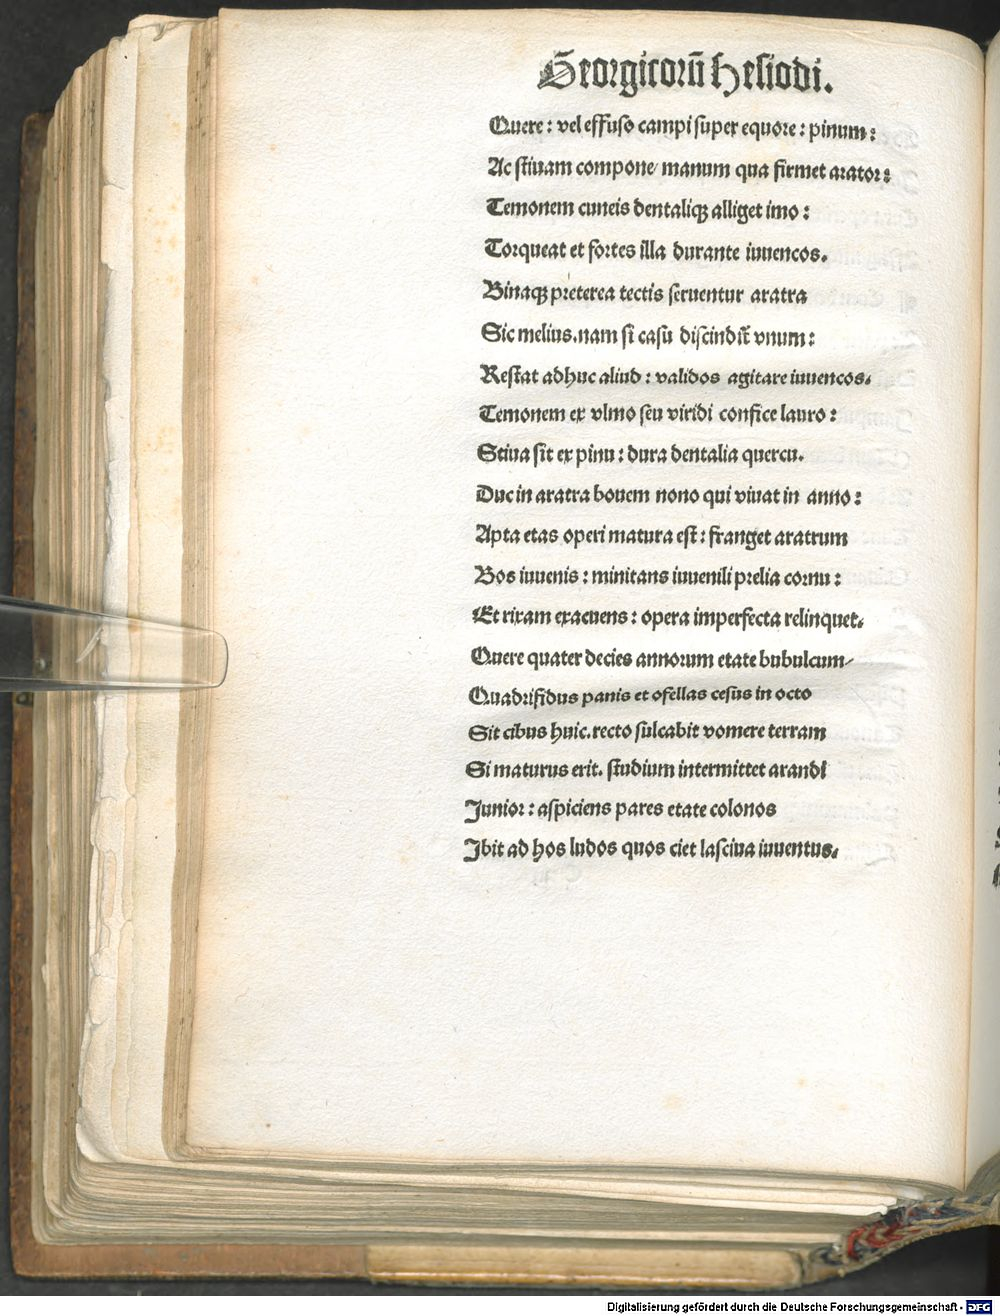 Georgicorū Hesiodi.
Quere: vel effuso campi super equore: pinum:
Ac stiuam compone/ manum qua firmet arator:
Temonem cuneis dentaliqꝫ alliget imo:
Torqueat et fortes illa durante iuuencos.
Binaqꝫ preterea tectis seruentur aratra
Sic melius. nam si casu discindit̄ vnum:
Restat adhuc aliud: validos agitare iuuencos.
Temonem ex vlmo seu viridi confice lauro:
Stiua sit ex pinu: dura dentalia quercu.
Duc in aratra bouem nono qui viuat in anno:
Apta etas operi matura est: franget aratrum
Bos iuuenis: minitans iuuenili prelia cornu:
Et rixam exacuens: opera imperfecta relinquet.
Quere quater decies annorum etate bubulcum/
Quadrifidus panis et ofellas cesus in octo
Sit cibus huic. recto sulcabit vomere terram
Si maturus erit. studium intermittet arandi
Junior: aspiciens pares etate colonos
Ibit ad hos ludos quos ciet lasciua iuuentus.
Digitalisierung gefördert durch die Deutsche Forschungsgemeinschaft - DFG